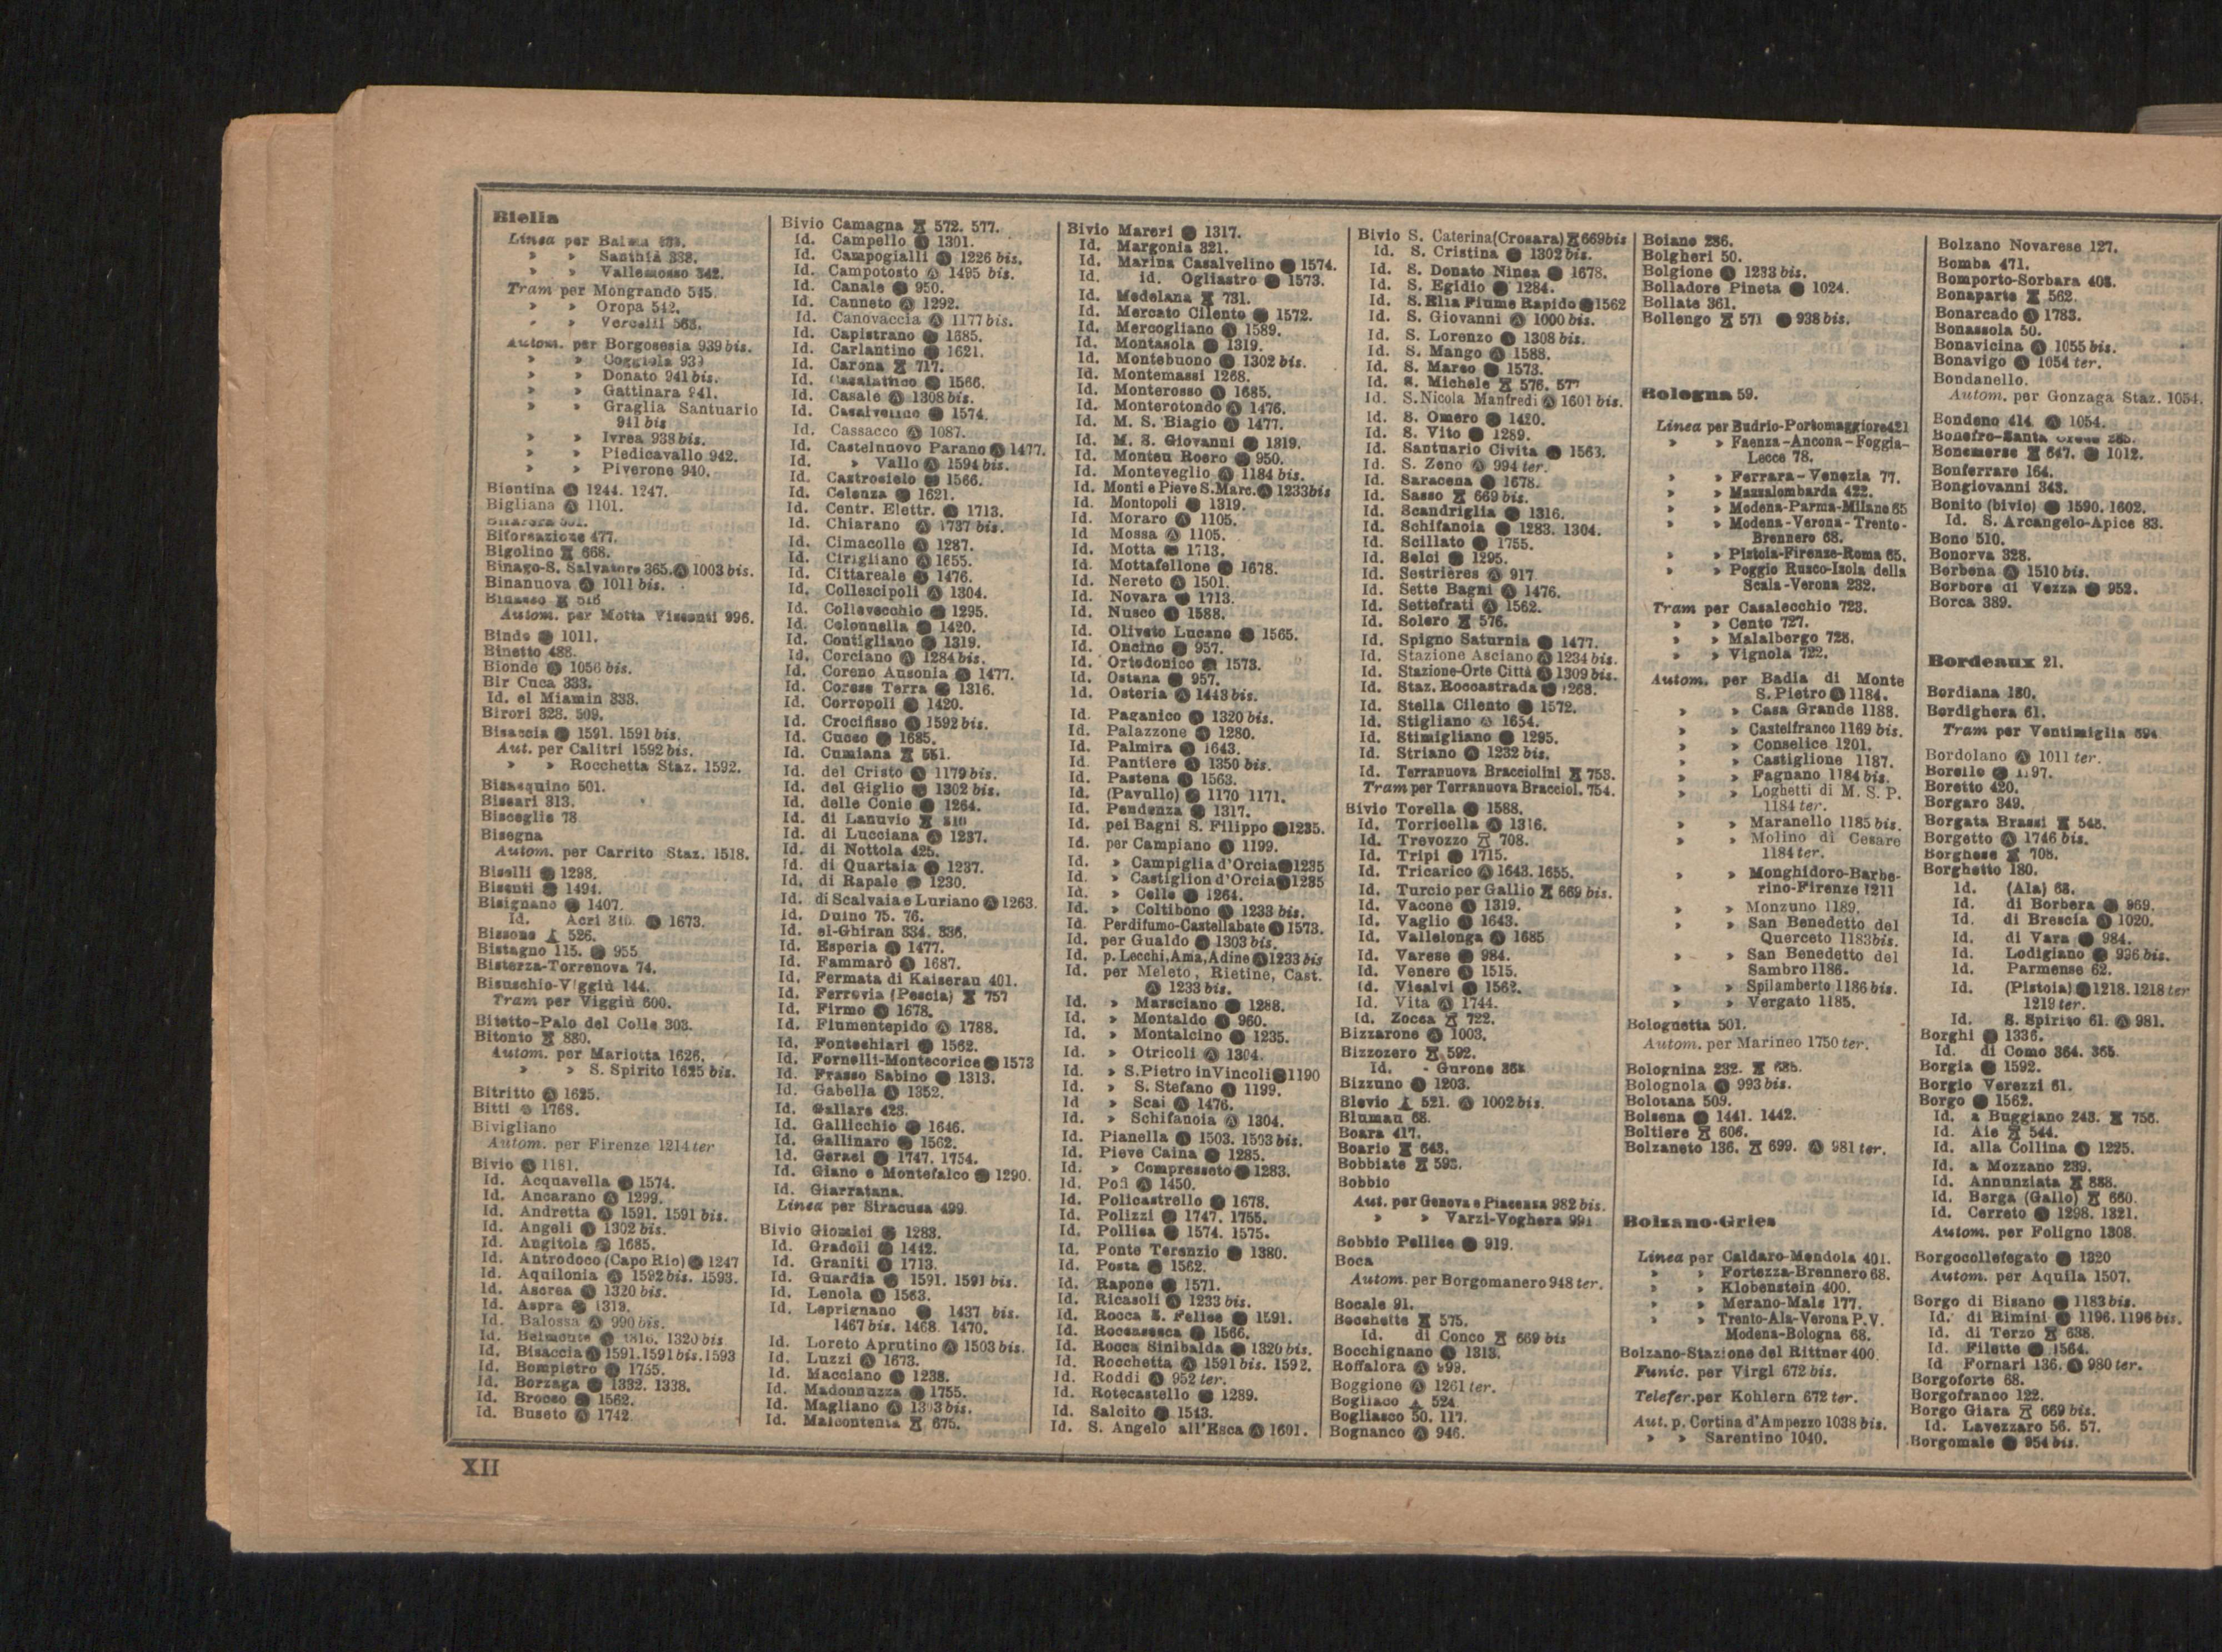 Biella
Linea per
» » Santhià 338.
» » Vallemosso 342.
Tram per Mongrando 545.
» » Oropa 542.
» » Vercelli 563.
Autom. per Borgosesia 939 bis.
» » Coggiola 939
» » Donato 941 bis.
» » Gattinara 941.
» » Graglia Santuario
941 bis
» » Ivrea 938 bis.
» » Piedicavallo 942.
» » Piverone 940.
Bientina Ⓐ 1244. 1247.
Bigliana Ⓐ 1101.
Biforcazione 477.
Bigolino 668.
Binago-S. Salvatore 365. Ⓐ 1003 bis.
Binanuova Ⓐ 1011 bis.
Binasco 516
Autom. per Motta Visconti 996.
Bindo Ⓐ 1011.
Binetto 488.
Bionde Ⓐ 1056 bis.
Bir Cuca 333.
Id. el Miamin 333.
Birori 328. 509.
Bisaccia Ⓐ 1591. 1591 bis.
Aut. per Calitri 1592 bis.
» » Rocchetta Staz. 1592.
Bisacquino 501.
Biscari 313.
Bisceglie 78
Bisegna
Autom. per Carrito Staz. 1518.
Biselli Ⓐ 1298.
Bisenti Ⓐ 1494.
Bisignano Ⓐ 1407.
Id. Acri Ⓐ 1673.
Bissone 526.
Bistagno 115. Ⓐ 955
Bisterza-Torrenova 74.
Bisuschio-Viggiù 144.
Tram per Viggiù 600.
Bitetto-Palo del Colle 303.
Bitonto 880.
Autom. per Mariotta 1626.
» » S. Spirito 1625 bis.
Bitritto Ⓐ 1625.
Bitti Ⓐ 1768.
Bivigliano
Autom. per Firenze 1214 ter
Bivio Ⓐ 1181.
Id. Acquavella Ⓐ 1574.
Id. Ancarano Ⓐ 1299.
Id. Andretta Ⓐ 1591. 1591 bis.
Id. Angeli Ⓐ 1302 bis.
Id. Angitola Ⓐ 1685.
Id. Antrodoco (Capo Rio) Ⓐ 1247
Id. Aquilonia Ⓐ 1592 bis. 1593.
Id. Ascrea Ⓐ 1320 bis.
Id. Aspra Ⓐ 1319.
Id. Balossa Ⓐ 990 bis.
Id. Belmonte Ⓐ 1316. 1320 bis
Id. Bisaccia Ⓐ 1591. 1591 bis. 1593
Id. Bompietro Ⓐ 1755.
Id. Borzaga Ⓐ 1332. 1338.
Id. Brocco Ⓐ 1562.
Id. Buseto Ⓐ 1742.
Bivio Camagna 572. 577.
Id. Campello Ⓐ 1301.
Id. Campogialli Ⓐ 1226 bis.
Id. Campotosto Ⓐ 1495 bis.
Id. Canale Ⓐ 950.
Id. Canneto Ⓐ 1292.
Id. Canovaccia Ⓐ 1177 bis.
Id. Capistrano Ⓐ 1685.
Id. Carlantino Ⓐ 1621.
Id. Carona 717.
Id. Casalattico Ⓐ 1566.
Id. Casale Ⓐ 1308 bis.
Id. Casalvelino Ⓐ 1574.
Id. Cassacco Ⓐ 1087.
Id. Castelnuovo Parano Ⓐ 1477.
Id. » Vallo Ⓐ 1594 bis.
Id. Castrocielo Ⓐ 1566.
Id. Celenza Ⓐ 1621.
Id. Centr. Elettr. Ⓐ 1713.
Id. Chiarano Ⓐ 1737 bis.
Id. Cimacolle Ⓐ 1287.
Id. Cirigliano Ⓐ 1655.
Id. Cittareale Ⓐ 1476.
Id. Collescipoli Ⓐ 1304.
Id. Collevecchio Ⓐ 1295.
Id. Colonnella Ⓐ 1420.
Id. Contigliano Ⓐ 1319.
Id. Corciano Ⓐ 1284 bis.
Id. Coreno Ausonia Ⓐ 1477.
Id. Corese Terra Ⓐ 1316.
Id. Corropoli Ⓐ 1420.
Id. Crocifisso Ⓐ 1592 bis.
Id. Cucco Ⓐ 1685.
Id. Cumiana 551.
Id. del Cristo Ⓐ 1179 bis.
Id. del Giglio Ⓐ 1302 bis.
Id. delle Conie Ⓐ 1264.
Id. di Lanuvio 810
Id. di Lucciana Ⓐ 1237.
Id. di Nottola 425.
Id. di Quartaia Ⓐ 1237.
Id. di Rapale Ⓐ 1230.
Id. di Scalvaia e Luriano Ⓐ 1263.
Id. Duino 75. 76.
Id. el-Ghiran 334. 336.
Id. Esperia Ⓐ 1477.
Id. Fammarò Ⓐ 1687.
Id. Fermata di Kaiserau 401.
Id. Ferrovia (Pescia) 757
Id. Firmo Ⓐ 1678.
Id. Fiumentepido Ⓐ 1788.
Id. Fontechiari Ⓐ 1562.
Id. Fornelli-Montecorice Ⓐ 1573
Id. Frasso Sabino Ⓐ 1313.
Id. Gabella Ⓐ 1352.
Id. Gallare 423.
Id. Gallicchio Ⓐ 1646.
Id. Gallinaro Ⓐ 1562.
Id. Geraci Ⓐ 1747. 1754.
Id. Giano e Montefalco Ⓐ 1290.
Id. Giarratana.
Linea per Siracusa 499.
Bivio Giomici Ⓐ 1283.
Id. Gradoli Ⓐ 1442.
Id. Graniti Ⓐ 1713.
Id. Guardia Ⓐ 1591. 1591 bis.
Id. Lenola Ⓐ 1563.
Id. Leprignano Ⓐ 1437 bis.
1467 bis. 1468. 1470.
Id. Loreto Aprutino Ⓐ 1503 bis.
Id. Luzzi Ⓐ 1673.
Id. Macciano Ⓐ 1238.
Id. Madonnuzza Ⓐ 1755.
Id. Magliano Ⓐ 1303 bis.
Id. Malcontenta 675.
Bivio Mareri Ⓐ 1317.
Id. Margonia 321.
Id. Marina Casalvelino Ⓐ 1574.
Id. id. Ogliastro Ⓐ 1573.
Id. Medelana 731.
Id. Mercato Cilento Ⓐ 1572.
Id. Mercogliano Ⓐ 1589.
Id. Montasola Ⓐ 1319.
Id. Montebuono Ⓐ 1302 bis.
Id. Montemassi 1268.
Id. Monterosso Ⓐ 1685.
Id. Monterotondo Ⓐ 1476.
Id. M. S. Biagio Ⓐ 1477.
Id. M. S. Giovanni Ⓐ 1319.
Id. Monteu Roero Ⓐ 950.
Id. Monteveglio Ⓐ 1184 bis.
Id. Monti e Pieve S. Marc. Ⓐ 1233 bis
Id. Montopoli Ⓐ 1319.
Id. Moraro Ⓐ 1105.
Id Mossa Ⓐ 1105.
Id. Motta Ⓐ 1713.
Id. Mottafellone Ⓐ 1678.
Id. Nereto Ⓐ 1501.
Id. Novara Ⓐ 1713.
Id. Nusco Ⓐ 1588.
Id. Oliveto Lucano Ⓐ 1565.
Id. Oncino Ⓐ 957.
Id. Ortodonico Ⓐ 1573.
Id. Ostana Ⓐ 957.
Id. Osteria Ⓐ 1443 bis.
Id. Paganico Ⓐ 1320 bis.
Id. Palazzone Ⓐ 1280.
Id. Palmira Ⓐ 1643.
Id. Pantiere Ⓐ 1350 bis.
Id. Pastena Ⓐ 1563.
Id. (Pavullo) Ⓐ 1170 1171.
Id. Pendenza Ⓐ 1317.
Id. pei Bagni S. Filippo Ⓐ 1235.
Id. per Campiano Ⓐ 1199.
Id. » Campiglia d'Orcia Ⓐ 1235
Id. » Castiglion d'Orcia Ⓐ 1235
Id. » Celle Ⓐ 1264.
Id. » Coltibono Ⓐ 1233 bis.
Id. Perdifumo-Castellabate Ⓐ 1573.
Id. per Gualdo Ⓐ 1303 bis.
Id. p. Lecchi, Ama, Adine Ⓐ 1233 bis
Id. per Meleto, Rietine, Cast.
Ⓐ 1233 bis.
Id. » Marsciano Ⓐ 1288.
Id. » Montaldo Ⓐ 960.
Id. » Montalcino Ⓐ 1235.
Id. » Otricoli Ⓐ 1304.
Id. » S. Pietro in Vincoli Ⓐ 1190
Id. » S. Stefano Ⓐ 1199.
Id » Scai Ⓐ 1476.
Id. » Schifanoia Ⓐ 1304.
Id. Pianella Ⓐ 1503. 1503 bis.
Id. Pieve Caina Ⓐ 1285.
Id. » Compresseto Ⓐ 1283.
Id. Pofi Ⓐ 1450.
Id. Policastrello Ⓐ 1678.
Id. Polizzi Ⓐ 1747. 1755.
Id. Pollica Ⓐ 1574. 1575.
Id. Ponte Terenzio Ⓐ 1380.
Id. Posta Ⓐ 1562.
Id. Rapone Ⓐ 1571.
Id. Ricasoli Ⓐ 1233 bis.
Id. Rocca S. Felice Ⓐ 1591.
Id. Roccasecca Ⓐ 1566.
Id. Rocca Sinibalda Ⓐ 1320 bis.
Id. Rocchetta Ⓐ 1591 bis. 1592.
Id. Roddi Ⓐ 952 ter.
Id. Rotecastello Ⓐ 1289.
Id. Salcito Ⓐ 1513.
Id. S. Angelo all'Esca Ⓐ 1601.
Bivio S. Caterina (Crosara) 669 bis
Id. S. Cristina Ⓐ 1302 bis.
Id. S. Donato Ninea Ⓐ 1678.
Id. S. Egidio Ⓐ 1284.
Id. S. Elia Fiume Rapido Ⓐ 1562
Id. S. Giovanni Ⓐ 1000 bis.
Id. S. Lorenzo Ⓐ 1308 bis.
Id. S. Mango Ⓐ 1588.
Id. S. Marco Ⓐ 1573.
Id. S. Michele 576. 577
Id. S. Nicola Manfredi Ⓐ 1601 bis.
Id. S. Omero Ⓐ 1420.
Id. S. Vito Ⓐ 1289.
Id. Santuario Civita Ⓐ 1563.
Id. S. Zeno Ⓐ 994 ter.
Id. Saracena Ⓐ 1678.
Id. Sasso 669 bis.
Id. Scandriglia Ⓐ 1316.
Id. Schifanoia Ⓐ 1283. 1304.
Id. Scillato Ⓐ 1755.
Id. Selci Ⓐ 1295.
Id. Sestrières Ⓐ 917
Id. Sette Bagni Ⓐ 1476.
Id. Settefrati Ⓐ 1562.
Id. Solero 576.
Id. Spigno Saturnia Ⓐ 1477.
Id. Stazione Asciano Ⓐ 1234 bis.
Id. Stazione-Orte Città Ⓐ 1309 bis.
Id. Staz. Roccastrada Ⓐ 1268.
Id. Stella Cilento Ⓐ 1572.
Id. Stigliano Ⓐ 1654.
Id. Stimigliano Ⓐ 1295.
Id. Striano Ⓐ 1232 bis.
Id. Terranuova Bracciolini 753.
Tram per Terranuova Bracciol. 754.
Bivio Torella Ⓐ 1588.
Id. Torricella Ⓐ 1316.
Id. Trevozzo 708.
Id. Tripi Ⓐ 1715.
Id. Tricarico Ⓐ 1643. 1655.
Id. Turcio per Gallio 669 bis.
Id. Vacone Ⓐ 1319.
Id. Vaglio Ⓐ 1643.
Id. Vallelonga Ⓐ 1685
Id. Varese Ⓐ 984.
Id. Venere Ⓐ 1515.
Id. Vicalvi Ⓐ 1562.
Id. Vita Ⓐ 1744.
Id. Zocca 722.
Bizzarone Ⓐ 1003.
Bizzozero 592.
Id. - Gurone
Bizzuno Ⓐ 1203.
Blevio 521. Ⓐ 1002 bis.
Blumau 68.
Boara 417.
Boario 643.
Bobbiate 593.
Bobbio
Aut. per Genova e Piacenza 982 bis.
» » Varzi-Voghera 991
Bobbio Pellice Ⓐ 919.
Boca
Autom. per Borgomanero 948 ter.
Bocale 91.
Bocchette 575.
Id. di Conco 669 bis
Bocchignano Ⓐ 1313.
Boffalora Ⓐ 999.
Boggione Ⓐ 1261 ter.
Bogliaco 524
Bogliasco 50. 117.
Bognanco Ⓐ 946.
Boiano 286.
Bolgheri 50.
Bolgione Ⓐ 1233 bis.
Bolladore Pineta Ⓐ 1024.
Bollate 361.
Bollengo 571 Ⓐ 938 bis.
Bologna 59.
Linea per Budrio-Portomaggiore 421
» » Faenza-Ancona-Foggia-
Lecce 78.
» » Ferrara-Venezia 77.
» » Massalombarda 422.
» » Modena-Parma-Milano 65
» » Modena-Verona-Trento-
Brennero 68.
» » Pistoia-Firenze-Roma 65.
» » Poggio Rusco-Isola della
Scala-Verona 232.
Tram per Casalecchio 723.
» » Cento 727.
» » Malalbergo 728.
» » Vignola 722.
Autom. per Badia di Monte
S. Pietro Ⓐ 1184.
» » Casa Grande 1188.
» » Castelfranco 1169 bis.
» » Conselice 1201.
» » Castiglione 1187.
» » Fagnano 1184 bis.
» » Loghetti di M. S. P.
1184 ter.
» » Maranello 1185 bis.
» » Molino di Cesare
1184 ter.
» » Monghidoro-Barbe-
rino-Firenze 1211
» » Monzuno 1189.
» » San Benedetto del
Querceto 1183 bis.
» » San Benedetto del
Sambro 1186.
» » Spilamberto 1186 bis.
» » Vergato 1185.
Bolognetta 501.
Autom. per Marineo 1750 ter.
Bolognina 232. 685.
Bolognola Ⓐ 993 bis.
Bolotana 509.
Bolsena Ⓐ 1441. 1442.
Boltiere 606.
Bolzaneto 136. 699. Ⓐ 981 ter.
Bolzano-Gries
Linea per Caldaro-Mendola 401.
» » Fortezza-Brennero 68.
» » Klobenstein 400.
» » Merano-Mals 177.
» » Trento-Ala-Verona P.V.
Modena-Bologna 68.
Bolzano-Stazione del Rittner 400.
Funic. per Virgl 672 bis.
Telefer. per Kohlern 672 ter.
Aut. p. Cortina d'Ampezzo 1038 bis.
» » Sarentino 1040.
Bolzano Novarese 127.
Bomba 471.
Bomporto-Sorbara 408.
Bonaparte 562.
Bonarcado Ⓐ 1783.
Bonassola 50.
Bonavicina Ⓐ 1055 bis.
Bonavigo Ⓐ 1054 ter.
Bondanello.
Autom. per Gonzaga Staz. 1054.
Bondeno 414. Ⓐ 1054.
Bonefro-Santa Croce 285.
Bonemerse 647. Ⓐ 1012.
Bonferraro 164.
Bongiovanni 343.
Bonito (bivio) Ⓐ 1590. 1602.
Id. S. Arcangelo-Apice 83.
Bono 510.
Bonorva 328.
Borbona Ⓐ 1510 bis.
Borbore di Vezza Ⓐ 952.
Borca 389.
Bordeaux 21.
Bordiana 180.
Bordighera 61.
Tram per Ventimiglia 694
Bordolano Ⓐ 1011 ter.
Borello Ⓐ 1197.
Boretto 420.
Borgaro 349.
Borgata Brassi 548.
Borgetto Ⓐ 1746 bis.
Borghese 708.
Borghetto 180.
Id. (Ala) 68.
Id. di Borbera Ⓐ 969.
Id. di Brescia Ⓐ 1020.
Id. di Vara Ⓐ 984.
Id. Lodigiano Ⓐ 996 bis.
Id. Parmense 62.
Id. (Pistoia) Ⓐ 1218. 1218 ter
1219 ter.
Id. S. Spirito 61. Ⓐ 981.
Borghi Ⓐ 1336.
Id. di Como 364. 365.
Borgia Ⓐ 1592.
Borgio Verezzi 61.
Borgo Ⓐ 1562.
Id. a Buggiano 243. 756.
Id. Aie 544.
Id. alla Collina Ⓐ 1225.
Id. a Mozzano 239.
Id. Annunziata 888.
Id. Berga (Gallo) 660.
Id. Cerreto Ⓐ 1298. 1321.
Autom. per Foligno 1303.
Borgocollefegato Ⓐ 1320
Autom. per Aquila 1507.
Borgo di Bisano Ⓐ 1183 bis.
Id. di Rimini Ⓐ 1196. 1196 bis.
Id. di Terzo 638.
Id. Filetto Ⓐ 1564.
Id Fornari 136. Ⓐ 980 ter.
Borgoforte 68.
Borgofranco 122.
Borgo Giara 669 bis.
Id. Lavezzaro 56. 57.
Borgomale Ⓐ 954 bis.
XII